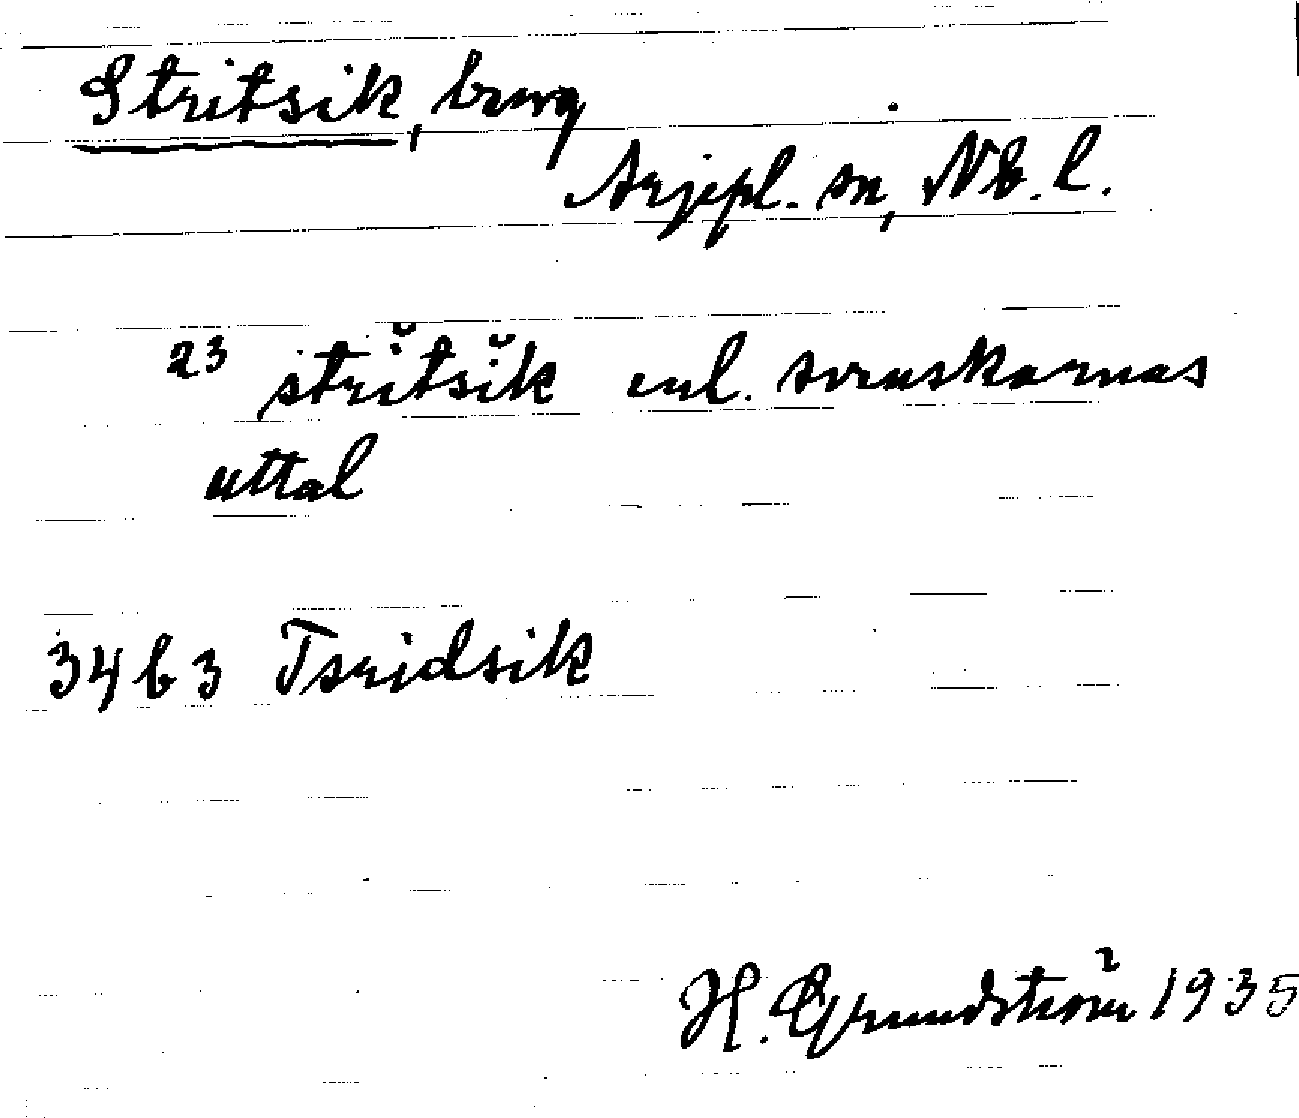 Stritsik, berg
Arjepl. sn, Nb. l.
23 strĭtsĭk enl. svenskarnas
uttal
34 b 3 Tsridsik
H. Grundström 1935